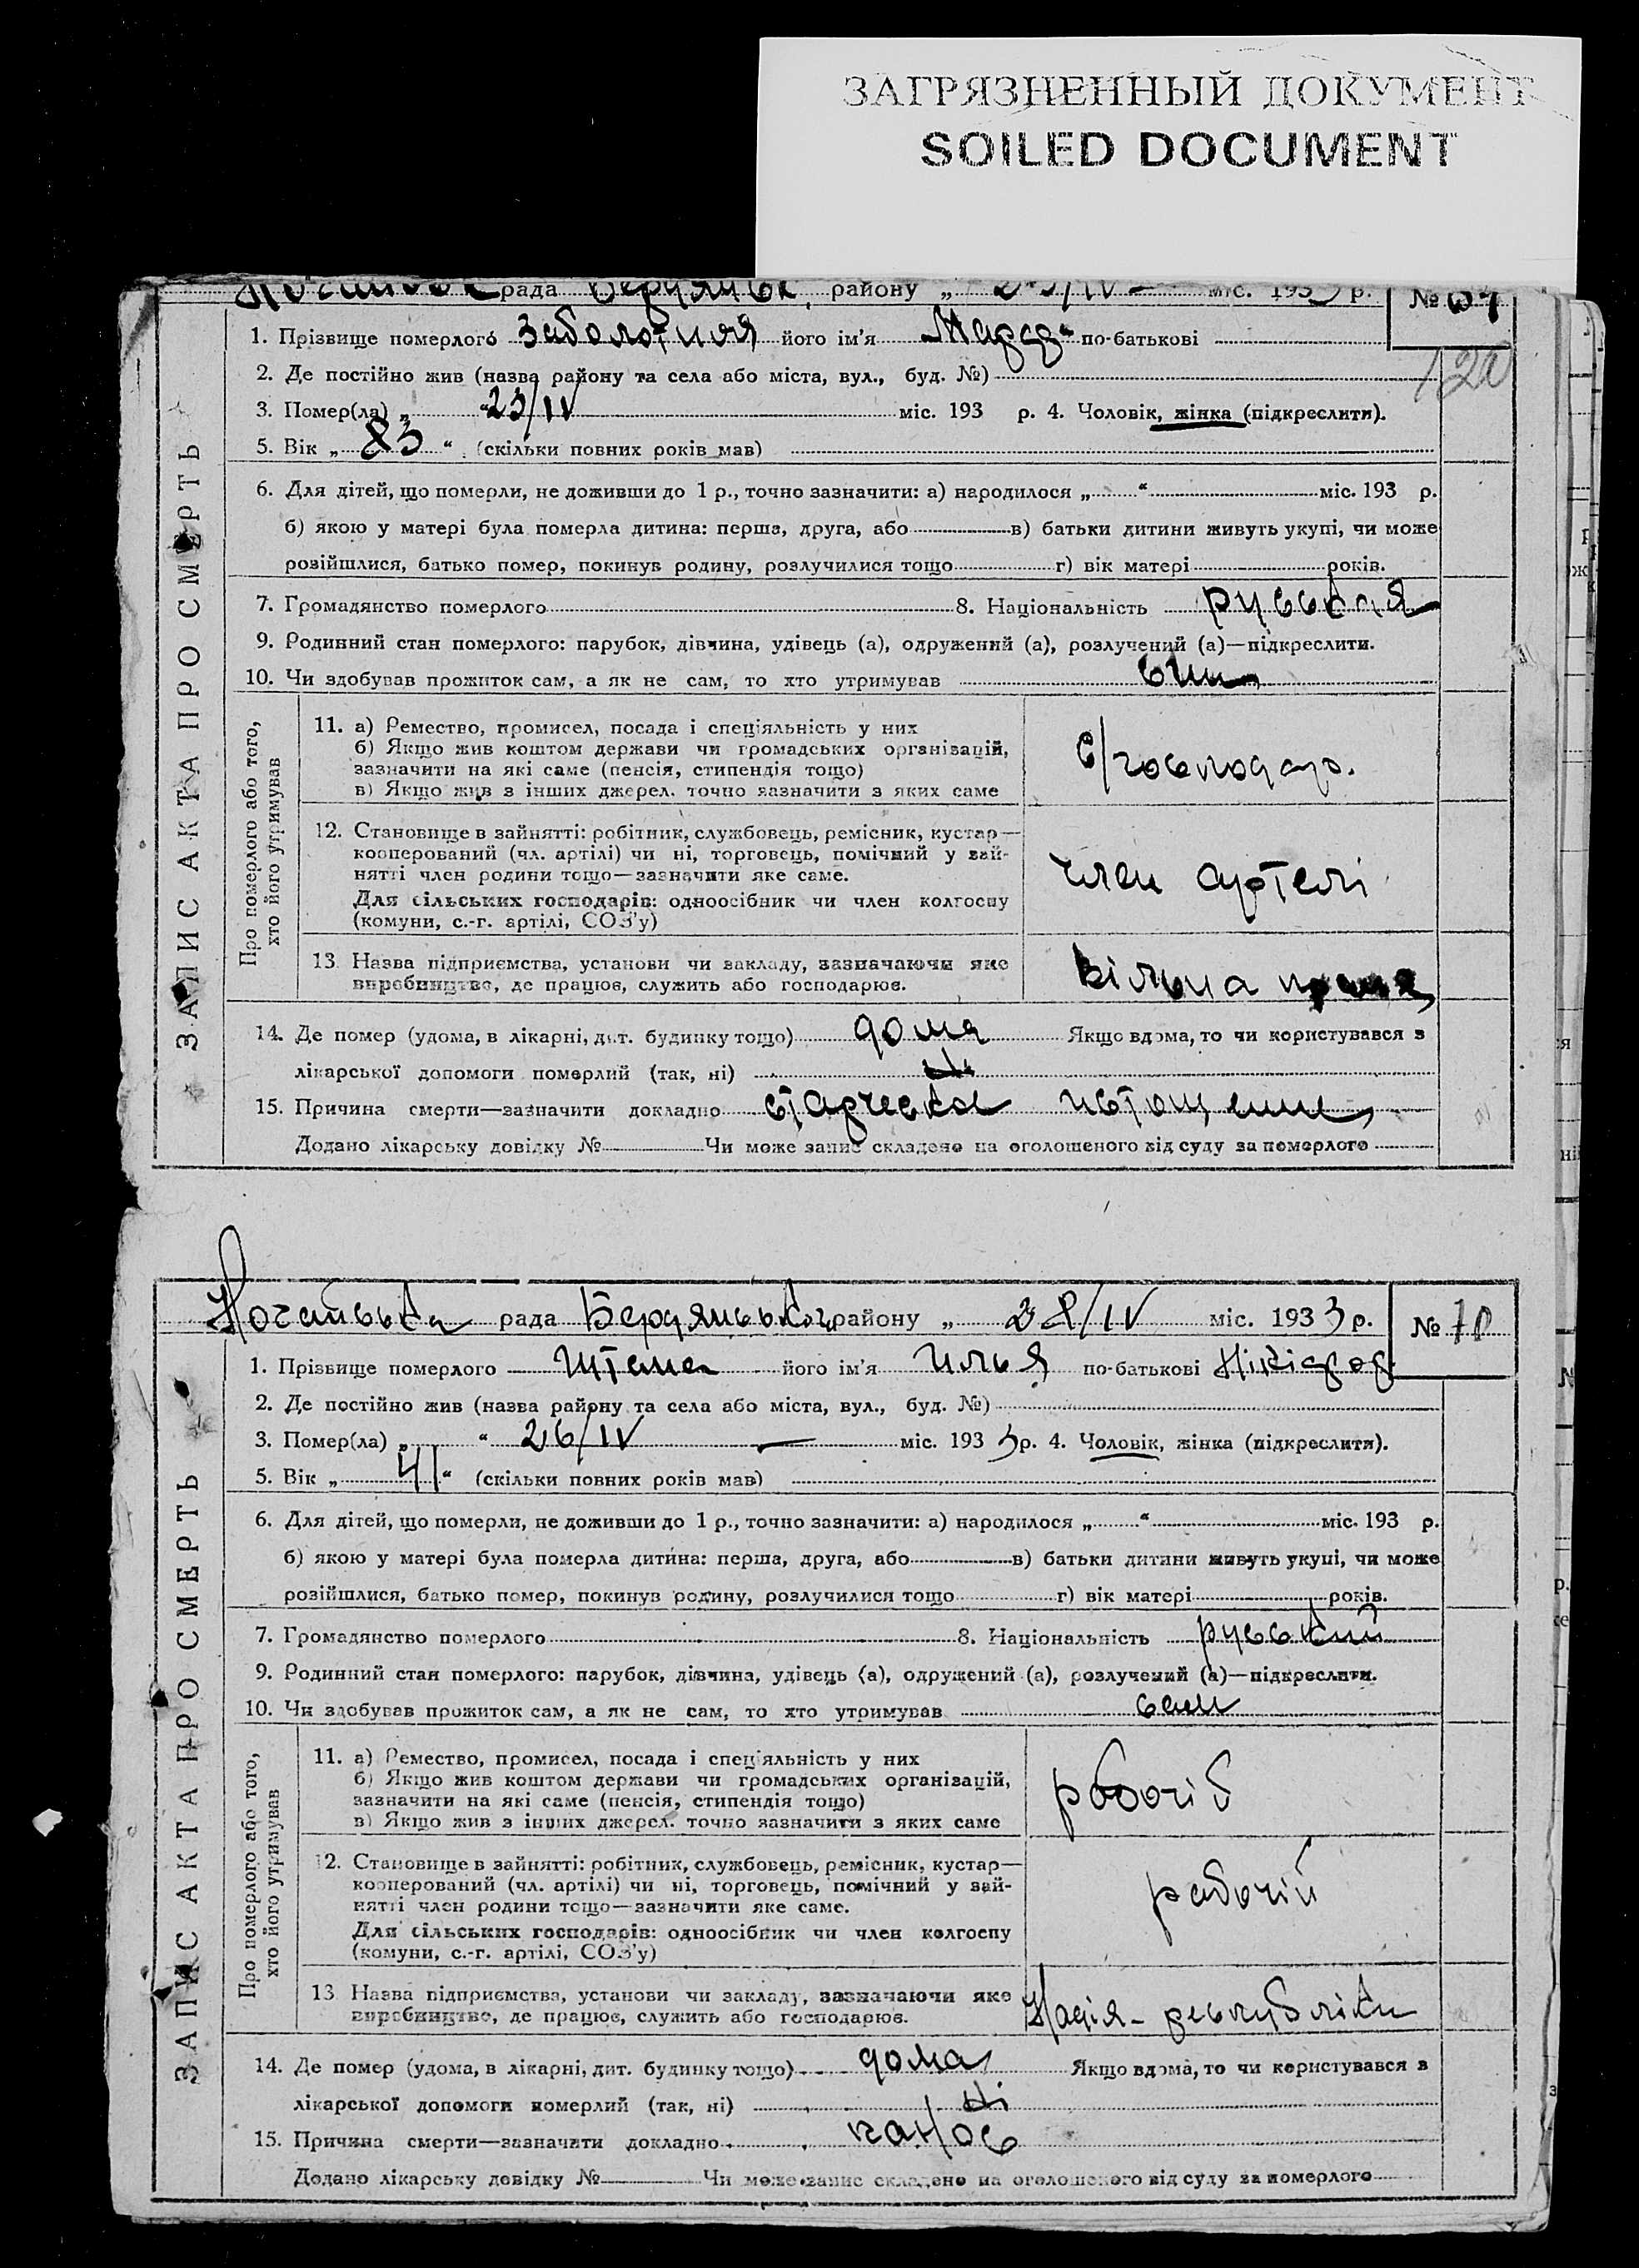 ЗАГРЯЗНЕННЫЙ ДОКУМЕНТ
SOILED DOCUMENT
рада району „ міс. 1933 р. №
1. Прізвище померлого Заболотная його ім'я по-батькові
120
2. Де постійно жив (назва району та села або міста, вул., буд. №)
3. Помер(ла) „ “ 23/IV міс. 193 р. 4. Чоловік, жінка (підкреслити).
5. Вік „ 83 “ (скільки повних років мав)
6. Для дітей, що померли, не доживши до 1 р., точно зазначити: а) народилося „ “ міс. 193 р.
б) якою у матері була померла дитина: перша, друга, або в) батьки дитини живуть укупі, чи може
розійшлися, батько помер, покинув родину, розлучилися тощо г) вік матері років.
7. Громадянство померлого 8. Національність русская
9. Родинний стан померлого: парубок, дівчина, удівець (а), одружений (а), розлучений (а)—підкреслити.
10. Чи здобував прожиток сам, а як не сам, то хто утримував
ЗАПИС АКТА ПРО СМЕРТЬ
Про померлого або того,
хто його утримував
11. а) Ремество, промисел, посада і спеціяльність у них
б) Якщо жив коштом держави чи громадських організацій,
зазначити на які саме (пенсія, стипендія тощо)
в) Якщо жив з інших джерел. точно зазначити з яких саме
с/господар.
12. Становище в зайнятті: робітник, службовець, ремісник, кустар—
кооперований (чл. артілі) чи ні, торговець, помічний у зай-
нятті член родини тощо—зазначити яке саме.
Для сільських господарів: одноосібник чи член колгоспу
(комуни, с.-г. артілі, СОЗ'у)
член артелі
13. Назва підприємства, установи чи закладу, зазначаючи яке
виробництво, де працює, служить або господарює.
вільна
14. Де помер (удома, в лікарні, дит. будинку тощо) дома Якщо вдома, то чи користувався з
лікарської допомоги померлий (так, ні) ні
15. Причина смерти—зазначити докладно старческое истощение
Додано лікарську довідку № Чи може запис складено на оголошеного від суду за померлого
рада Бердянського району „ 28/IV міс. 1933 р. № 70
1. Прізвище померлого його ім'я Илья по-батькові
2. Де постійно жив (назва району та села або міста, вул., буд. №)
3. Помер(ла) „ “ 26/IV — міс. 1933 р. 4. Чоловік, жінка (підкреслити).
5. Вік „ 41 “ (скільки повних років мав)
6. Для дітей, що померли, не доживши до 1 р., точно зазначити: а) народилося „ “ міс. 193 р.
б) якою у матері була померла дитина: перша, друга, або в) батьки дитини живуть укупі, чи може
розійшлися, батько помер, покинув родину, розлучилися тощо г) вік матері років.
7. Громадянство померлого 8. Національність русский
9. Родинний стан померлого: парубок, дівчина, удівець (а), одружений (а), розлучений (а)—підкреслити.
10. Чи здобував прожиток сам, а як не сам, то хто утримував сам
ЗАПИС АКТА ПРО СМЕРТЬ
Про померлого або того,
хто його утримував
11. а) Ремество, промисел, посада і спеціяльність у них
б) Якщо жив коштом держави чи громадських організацій,
зазначити на які саме (пенсія, стипендія тощо)
в) Якщо жив з інших джерел. точно зазначити з яких саме
робочій
12. Становище в зайнятті: робітник, службовець, ремісник, кустар—
кооперований (чл. артілі) чи ні, торговець, помічний у зай-
нятті член родини тощо—зазначити яке саме.
Для сільських господарів: одноосібник чи член колгоспу
(комуни, с.-г. артілі, СОЗ'у)
рабочій
13. Назва підприємства, установи чи закладу, зазначаючи яке
виробництво, де працює, служить або господарює.
Надія - республіки
14. Де помер (удома, в лікарні, дит. будинку тощо) дома Якщо вдома, то чи користувався з
лікарської допомоги померлий (так, ні) ні
15. Причина смерти—зазначити докладно
Додано лікарську довідку № Чи може запис складено на оголошеного від суду за померлого